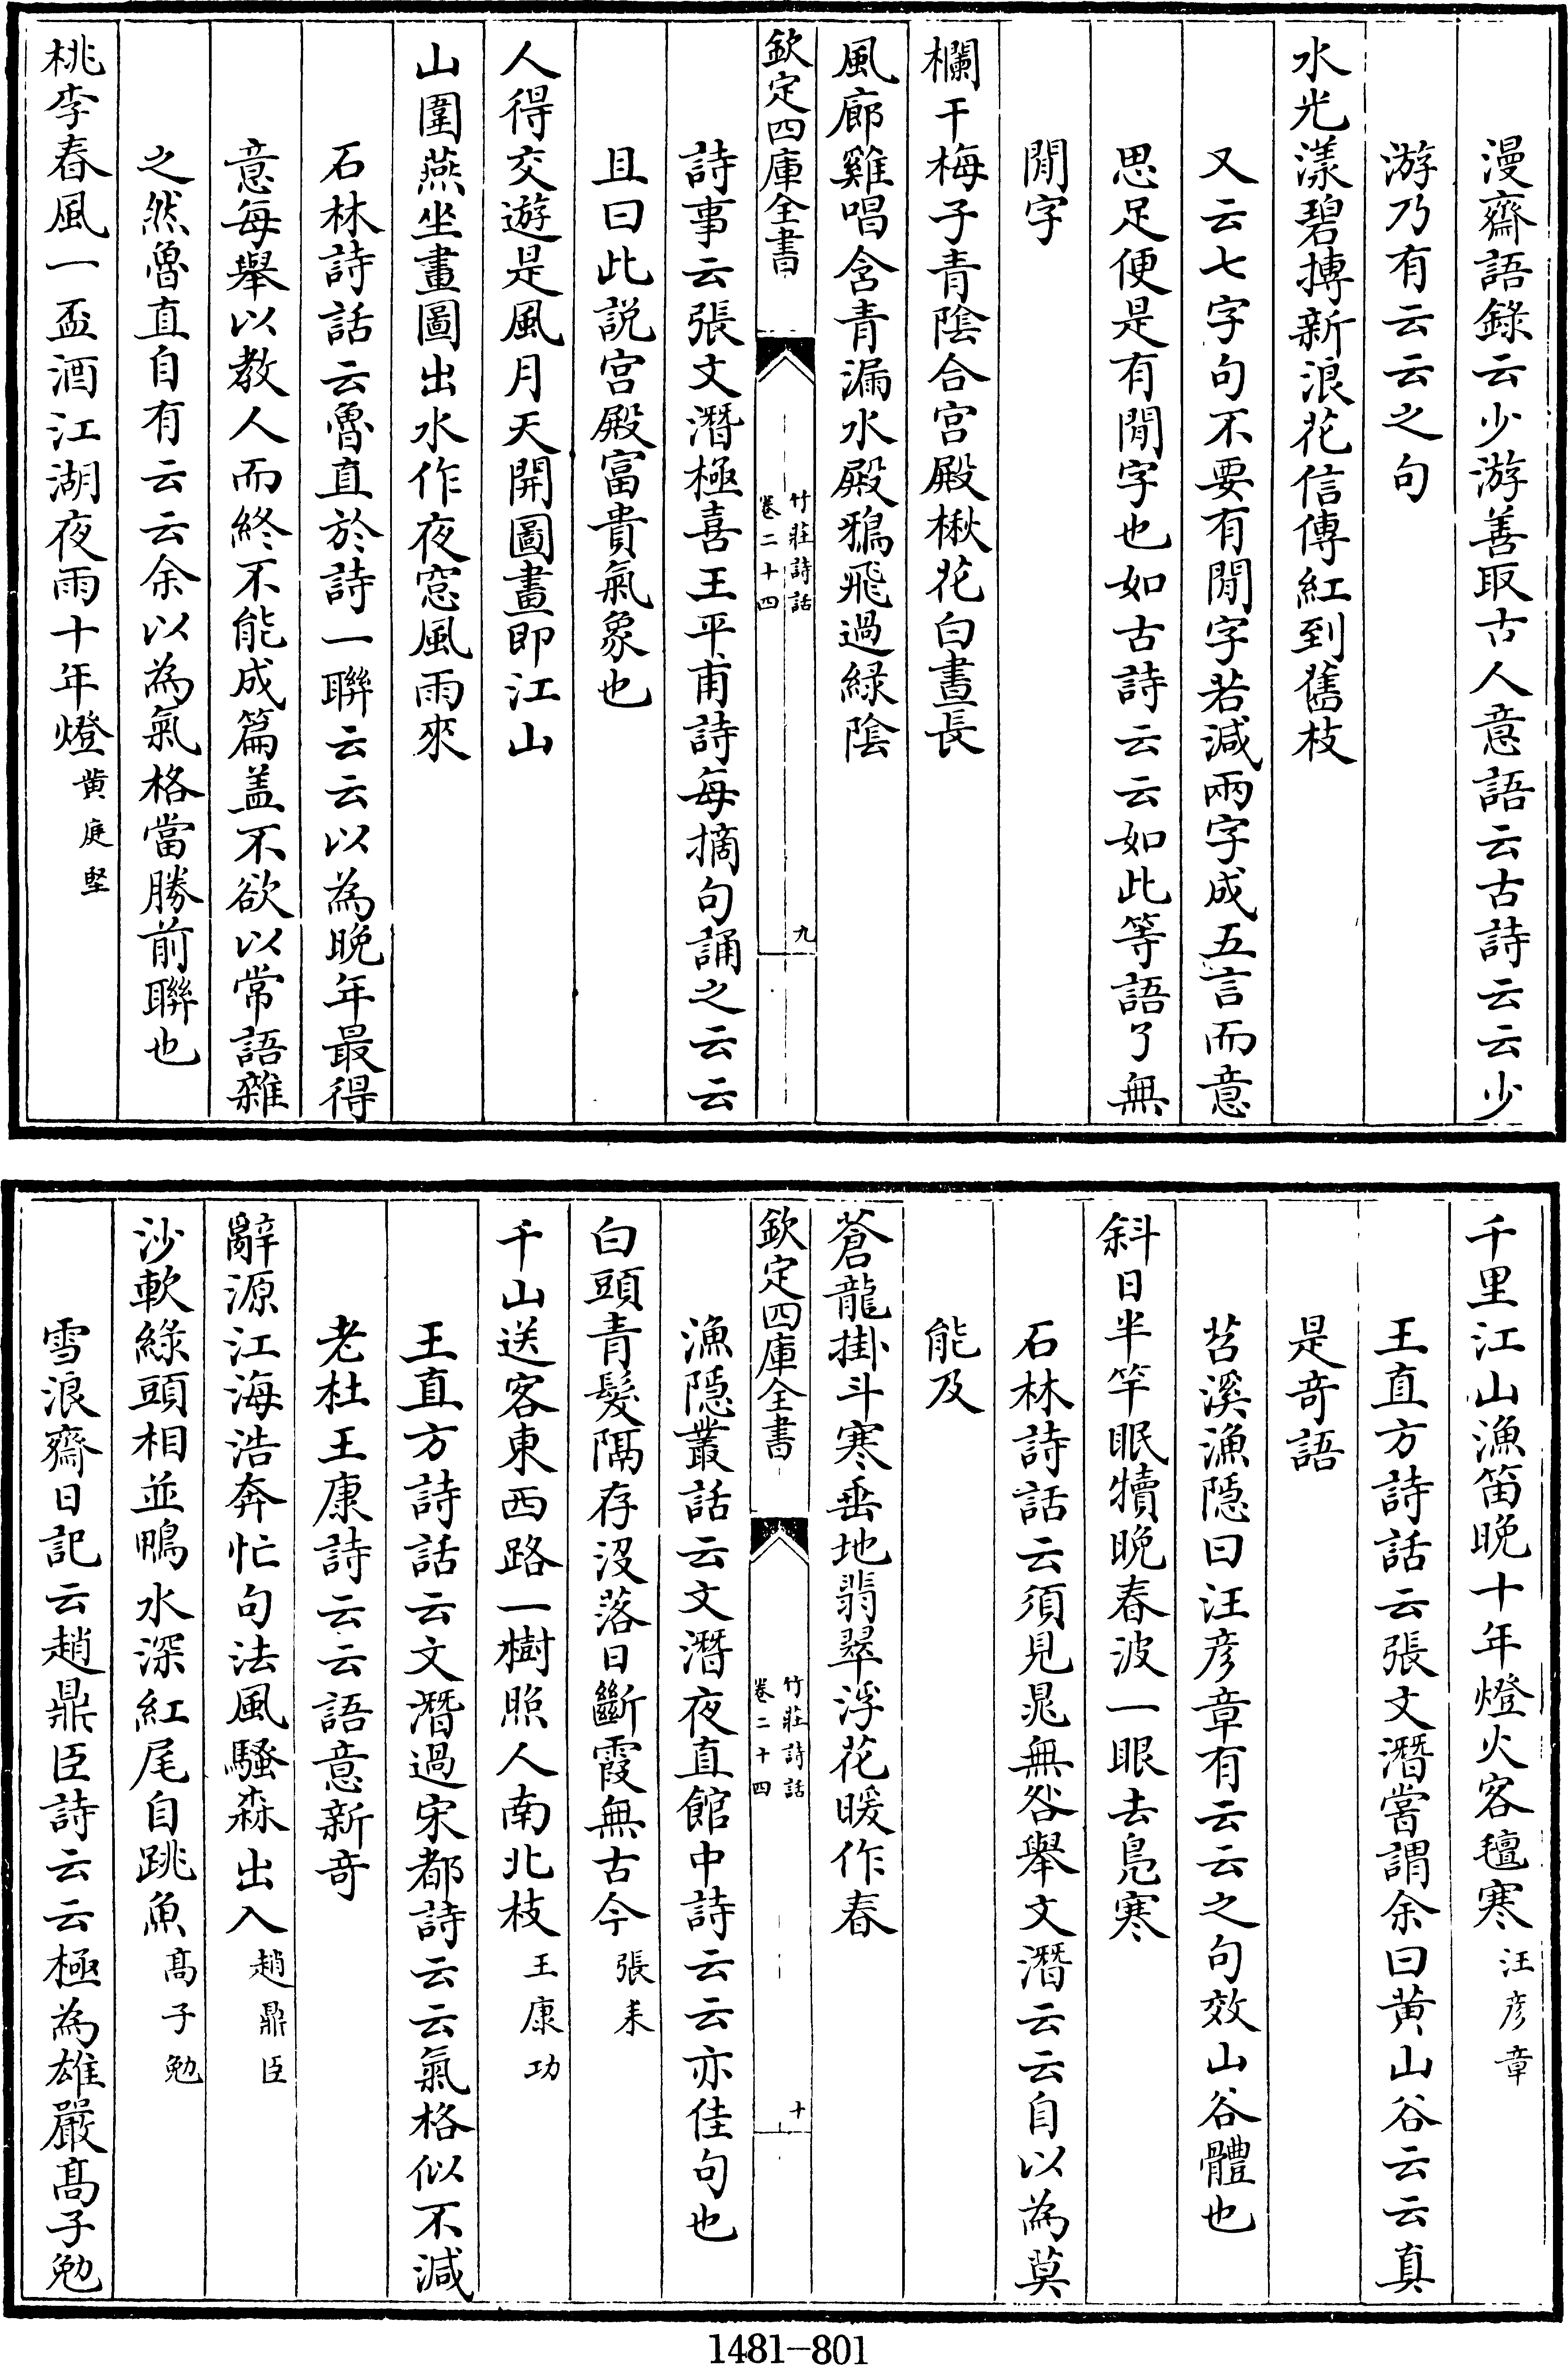 漫齋語錄云少游善取古人意語云古詩云云少
游乃有云云之句
水光漾碧摶新浪花信傳紅到舊枝
又云七字句不要有閒字若減兩字成五言而意
思足便是有閒字也如古詩云云如此等語了無
閒字
欄干梅子青陰合宮殿楸花白晝長
風廊雞唱含青漏水殿鴉飛過綠陰
欽定四庫全書
竹莊詩話
卷二十四
九
詩事云張文潛極喜王平甫詩每摘句誦之云云
且曰此説宮殿富貴氣象也
人得交遊是風月天開圖畫即江山
山圍燕坐畫圖出水作夜窓風雨來
石林詩話云魯直於詩一聯云云以為晚年最得
意每舉以教人而終不能成篇盖不欲以常語雜
之然魯直自有云云余以為氣格當勝前聯也
桃李春風一盃酒江湖夜雨十年燈黄庭堅
千里江山漁笛晚十年燈火客氊寒汪彦章
王直方詩話云張文潛嘗謂余曰黄山谷云云真
是奇語
苕溪漁隠曰汪彦章有云云之句效山谷體也
斜日半竿眠犢晚春波一眼去鳬寒
石林詩話云須見晁無咎舉文潛云云自以為莫
能及
蒼龍掛斗寒垂地翡翠浮花暖作春
欽定四庫全書
竹莊詩話
卷二十四
十
漁隠叢話云文潛夜直館中詩云云亦佳句也
白頭青髮隔存沒落日斷霞無古今張耒
千山送客東西路一樹照人南北枝王康功
王直方詩話云文潛過宋都詩云云氣格似不減
老杜王康詩云云語意新奇
辭源江海浩奔忙句法風騷森出入趙鼎臣
沙軟綠頭相並鴨水深紅尾自跳魚髙子勉
雪浪齋日記云趙鼎臣詩云云極為雄嚴髙子勉
1481-801